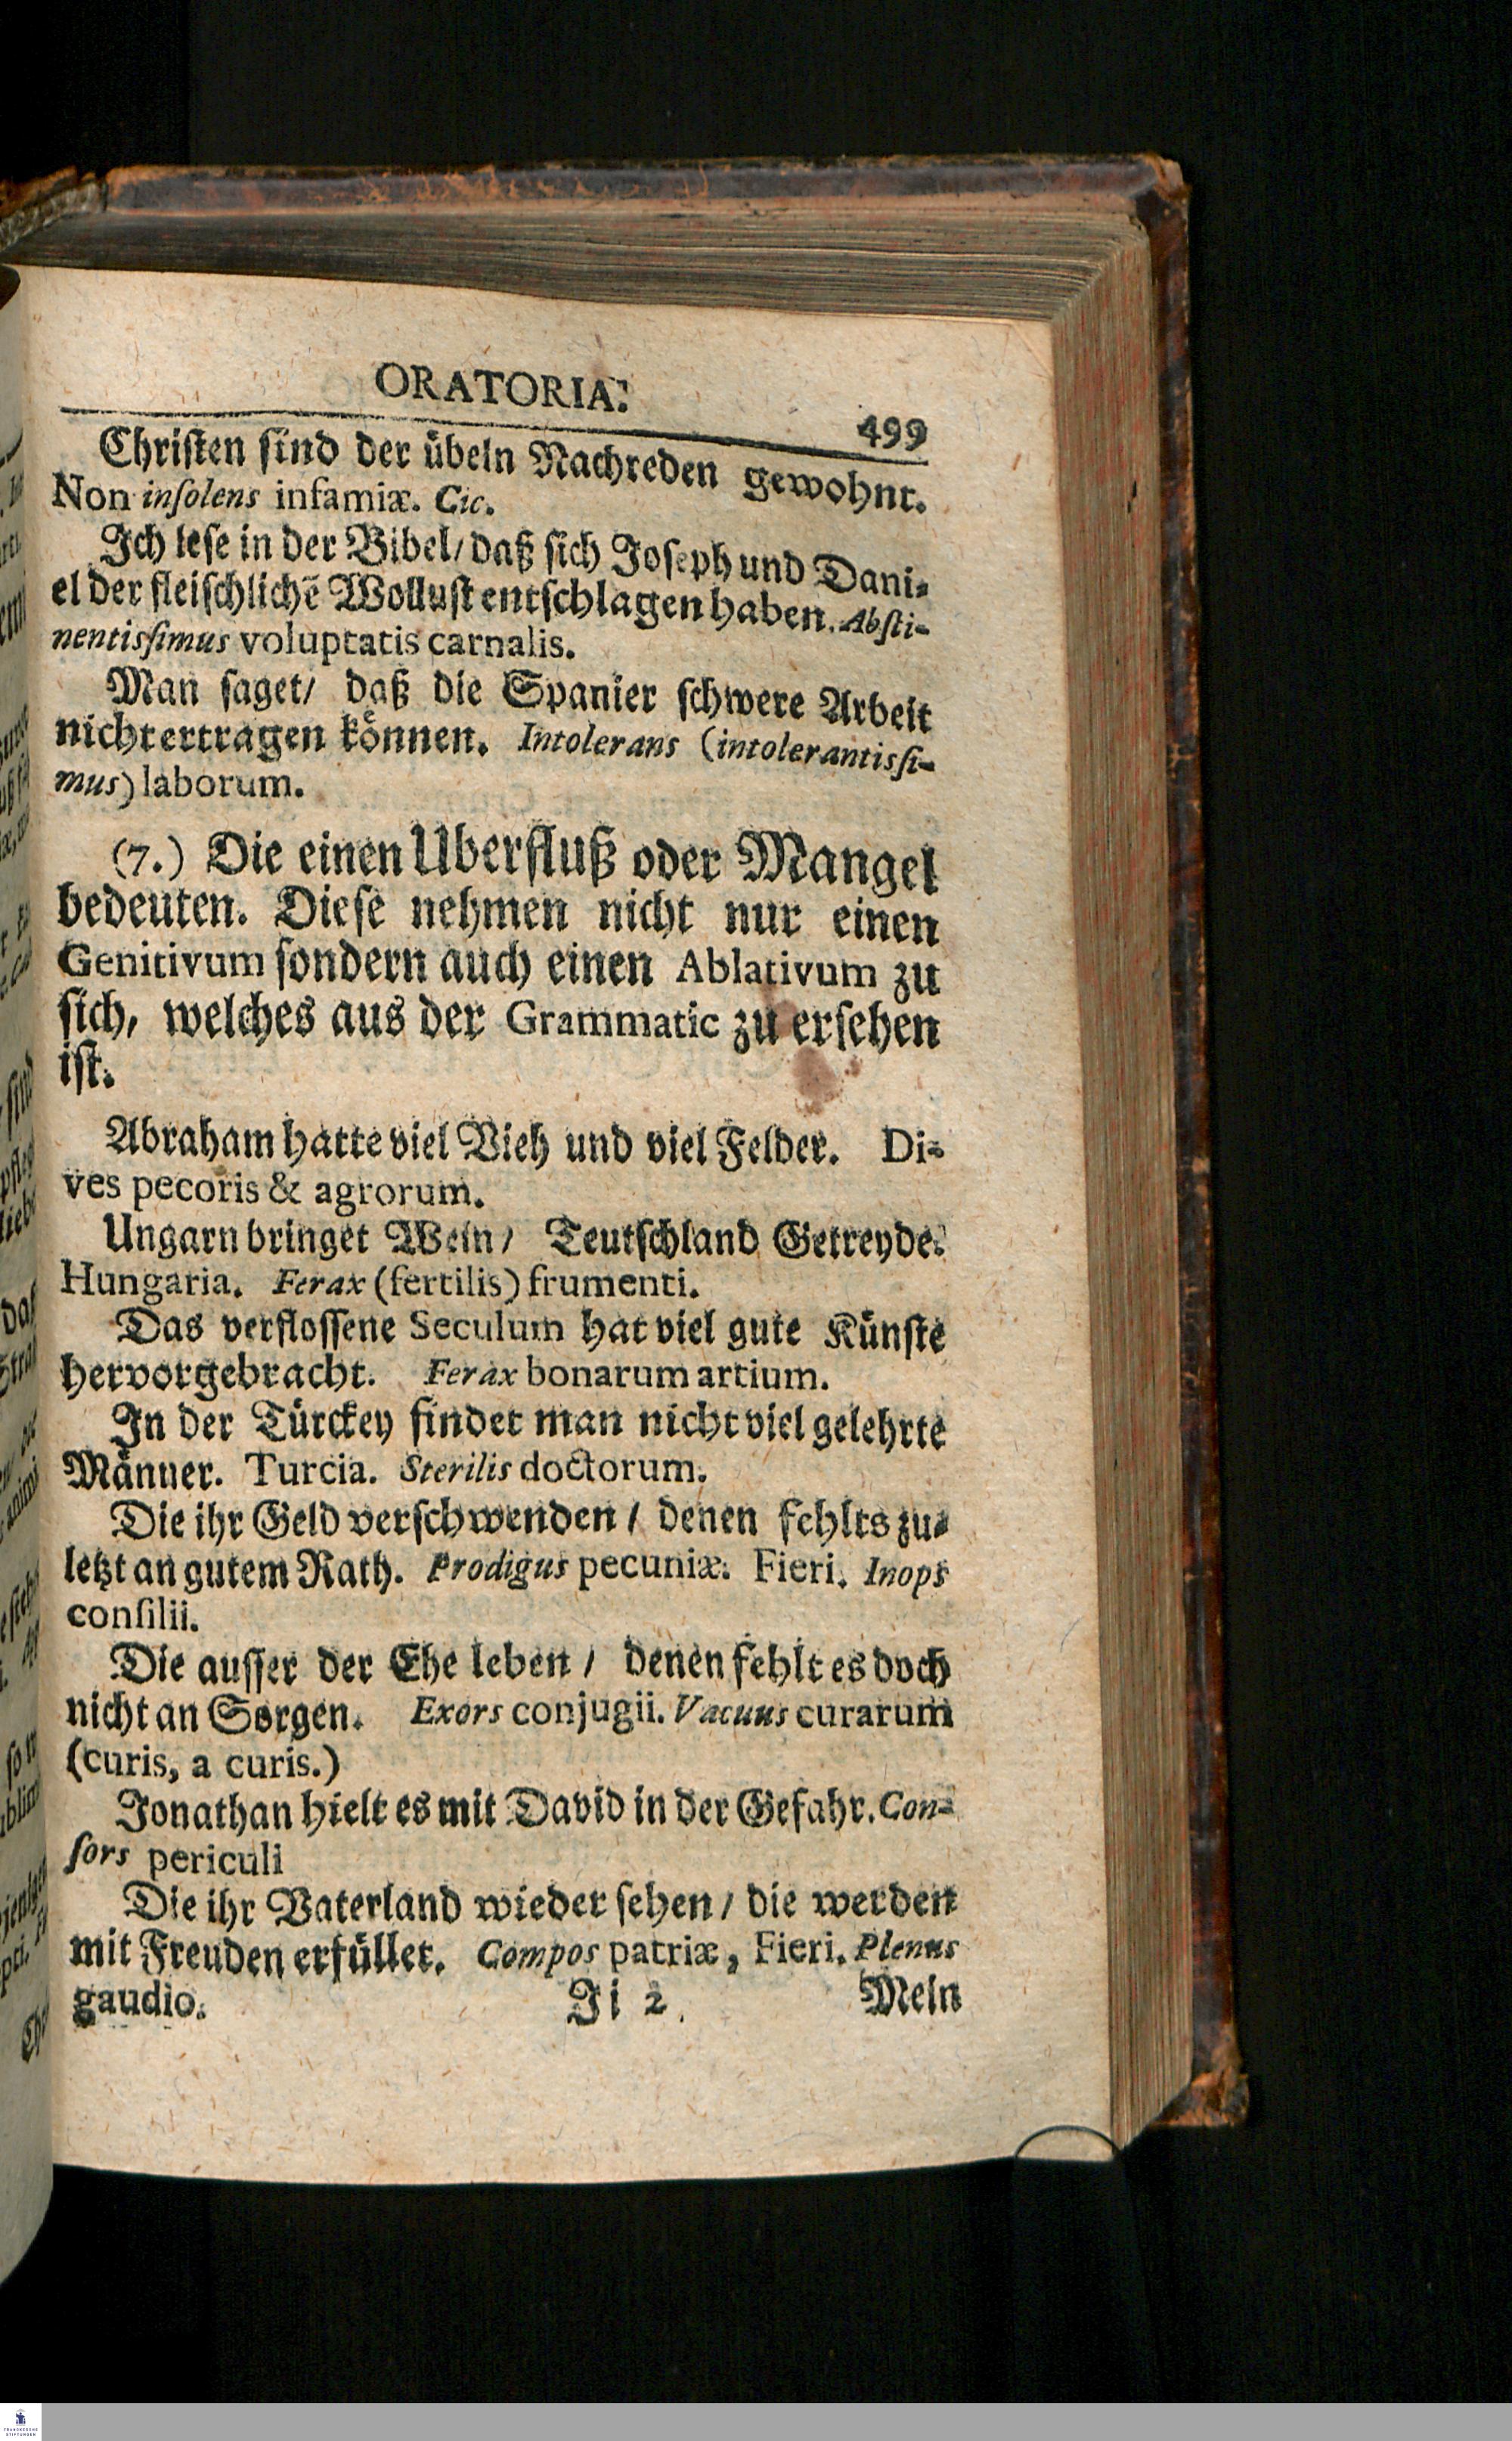 ORATORIA. 499
Christen sind der übeln Nachreden gewohnt.
Non insolens infamiæ. Cic.
Ich lese in der Bibel/ daß sich Joseph und Dani-
el der fleischlichẽ Wollust entschlagen haben. Absti-
nentissimus voluptatis carnalis.
Man saget/ daß die Spanier schwere Arbeit
nicht ertragen können. Intolerans (intolerantissi-
mus) laborum.
(7.) Die einen Uberfluß oder Mangel
bedeuten. Diese nehmen nicht nur einen
Genitivum sondern auch einen Ablativum zu
sich, welches aus der Grammatic zu ersehen
ist.
Abraham hatte viel Vieh und viel Felder. Di-
ves pecoris & agrorum.
Ungarn bringet Wein/ Teutschland Getreyde.
Hungaria. Ferax (fertilis) frumenti.
Das verflossene Seculum hat viel gute Künste
hervorgebracht. Ferax bonarum artium.
In der Türckey findet man nicht viel gelehrte
Männer. Turcia. Sterilis doctorum.
Die ihr Geld verschwenden/ denen fehlts zu-
letzt an gutem Rath. Prodigus pecuniæ. Fieri. Inops
consilii.
Die ausser der Ehe leben/ denen fehlt es doch
nicht an Sorgen. Exors conjugii. Vacuus curarum
(curis, a curis.)
Jonathan hielt es mit David in der Gefahr. Con-
sors periculi
Die ihr Vaterland wieder sehen/ die werden
mit Freuden erfüllet. Compos patriæ, Fieri. Plenus
gaudio.
Ji 2 Mein
FRANCKESCHE
STIFTUNGEN